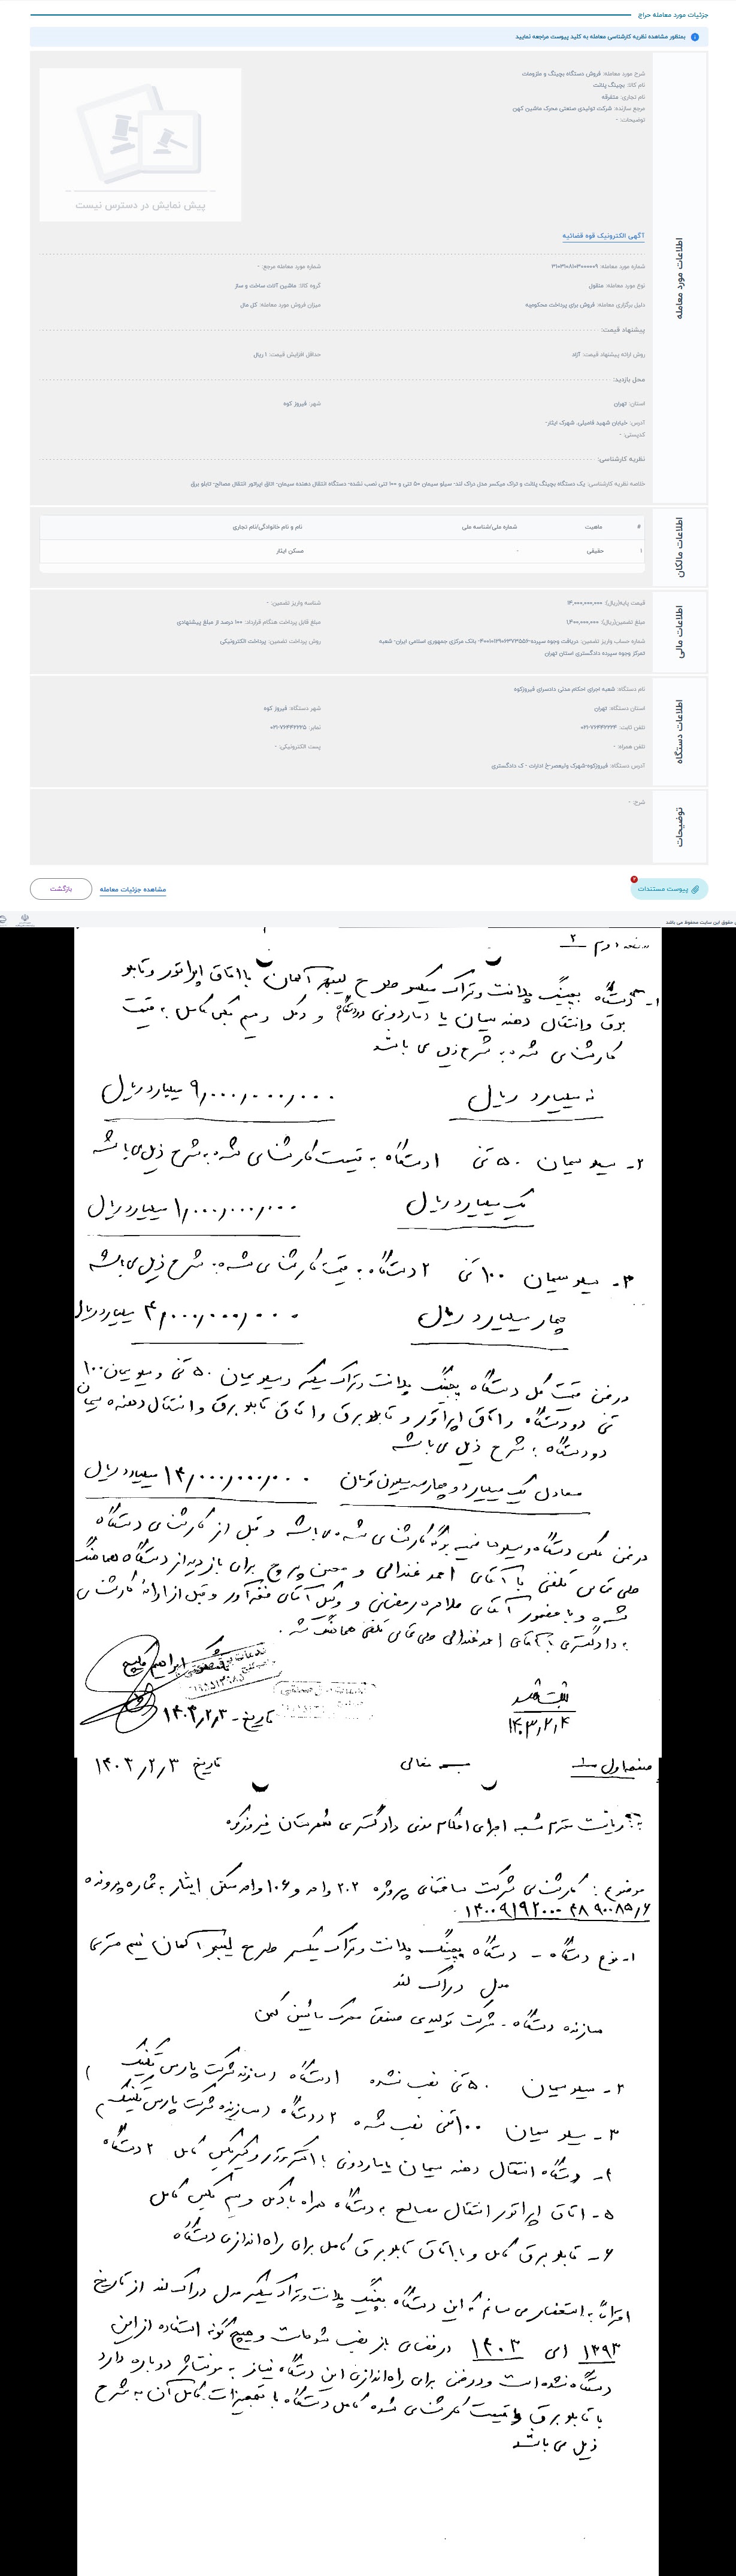 جزئیات مورد معامله حراج
بمنظور مشاهده نظریه کارشناسی معامله به کلید پیوست مراجعه نمایید
اطلاعات مورد معامله
شرح مورد معامله: فروش دستگاه بچینگ و ملزومات
نام کالا: بچینگ پلانت
نام تجاری: متفرقه
مرجع سازنده: شرکت تولیدی صنعتی محرک ماشین کهن
توضیحات: -
پیش نمایش در دسترس نیست
آگهی الکترونیک قوه قضائیه
شماره مورد معامله: ۳۱۰۳۱۰۸۱۰۳۰۰۰۰۰۹
شماره مورد معامله مرجع: -
نوع مورد معامله: منقول
گروه کالا: ماشین آلات ساخت و ساز
دلیل برگزاری معامله: فروش برای پرداخت محکوم‌به
میزان فروش مورد معامله: کل مال
پیشنهاد قیمت:
روش ارائه پیشنهاد قیمت: آزاد
حداقل افزایش قیمت: ۱ ریال
محل بازدید:
استان: تهران
شهر: فیروز کوه
آدرس: خیابان شهید فامیلی، شهرک ایثار-
کدپستی: -
نظریه کارشناسی:
خلاصه نظریه کارشناسی: یک دستگاه بچینگ پلانت و تراک میکسر مدل دراک لند- سیلو سیمان ۵۰ تنی و ۱۰۰ تنی نصب نشده- دستگاه انتقال دهنده سیمان- اتاق اپراتور انتقال مصالح- تابلو برق
اطلاعات مالکان
# ماهیت شماره ملی/شناسه ملی نام و نام خانوادگی/نام تجاری
۱ حقیقی - مسکن ایثار
اطلاعات مالی
قیمت پایه(ریال): ۱۴,۰۰۰,۰۰۰,۰۰۰
شناسه واریز تضمین: -
مبلغ تضمین(ریال): ۱,۴۰۰,۰۰۰,۰۰۰
مبلغ قابل پرداخت هنگام قرارداد: ۱۰۰ درصد از مبلغ پیشنهادی
شماره حساب واریز تضمین: دریافت وجوه سپرده-۴۰۰۱۰۱۳۹۰۶۳۷۳۵۵۶- بانک مرکزی جمهوری اسلامی ایران- شعبه
تمرکز وجوه سپرده دادگستری استان تهران
روش پرداخت تضمین: پرداخت الکترونیکی
اطلاعات دستگاه
نام دستگاه: شعبه اجرای احکام مدنی دادسرای فیروزکوه
استان دستگاه: تهران
شهر دستگاه: فیروز کوه
تلفن ثابت: ۷۶۴۴۲۲۲۴-۰۲۱
نمابر: ۷۶۴۴۲۲۲۵-۰۲۱
تلفن همراه: -
پست الکترونیکی: -
آدرس دستگاه: فیروزکوه-شهرک ولیعصر-خ ادارات - ک دادگستری
توضیحات
شرح: -
پیوست مستندات
مشاهده جزئیات معامله
بازگشت
حقوق این سایت محفوظ می باشد
صفحه دوم ۲
۱- دستگاه بچینگ پلانت و تراک میکسر طرح لیبهر آلمان با اتاق اپراتور و تابلو
برق و انتقال دهنده سیمان یا ماردونی دو دستگاه و دکل و سیم بکسل کامل به قیمت
کارشناسی شده به شرح ذیل می باشد
نه میلیارد ریال ۹٫۰۰۰٫۰۰۰٫۰۰۰ میلیارد ریال
۲- سیلو سیمان ۵۰ تنی ۱ دستگاه به قیمت کارشناسی شده به شرح ذیل می باشد
یک میلیارد ریال ۱٫۰۰۰٫۰۰۰٫۰۰۰ میلیارد ریال
۳- سیلو سیمان ۱۰۰ تنی ۲ دستگاه به قیمت کارشناسی شده به شرح ذیل می باشد
چهار میلیارد ریال ۴٫۰۰۰٫۰۰۰٫۰۰۰ میلیارد ریال
در ضمن قیمت کل دستگاه بچینگ پلانت و تراک میکسر و سیلو سیمان ۵۰ تنی و سیلو سیمان ۱۰۰
تنی دو دستگاه و اتاق اپراتور و تابلو برق و اتاق تابلو برق و انتقال دهنده سیمان
دو دستگاه به شرح ذیل می باشد
معادل یک میلیارد و چهارصد میلیون تومان ۱۴٫۰۰۰٫۰۰۰٫۰۰۰ میلیارد ریال
در ضمن عکس دستگاه و سیلوها ضمیمه برگه کارشناسی شده می باشد و قبل از کارشناسی دستگاه
طی تماس تلفنی با آقای احمد غندالی و برای بازدید از دستگاه هماهنگ
شده و با حضور آقای ملا و وکیل آقای و قبل از ارائه کارشناسی
به دادگستری با آقای احمد غندالی طی تماس تلفنی هماهنگ شد.
تاریخ - ۱۴۰۳٫۲٫۳
ثبت شد
۱۴۰۳٫۲٫۴
صفحه اول ۱ بسمه تعالی تاریخ ۱۴۰۳٫۲٫۳
به: ریاست محترم شعبه اجرای احکام مدنی دادگستری شهرستان فیروزکوه
موضوع: کارشناسی شرکت ساختمانی پروژه ۲۰۲ واحد و ۱۰۶ واحد مسکن ایثار به شماره پرونده
۱- نوع دستگاه - دستگاه بچینگ پلانت و تراک میکسر طرح لیبهر آلمان نیم متری
مدل دراک لند
سازنده دستگاه - شرکت تولیدی صنعتی محرک ماشین کهن
۲- سیلو سیمان ۵۰ تنی نصب نشده ۱ دستگاه (سازنده شرکت پارس تکنیک)
۳- سیلو سیمان ۱۰۰ تنی نصب شده ۲ دستگاه (سازنده شرکت پارس تکنیک)
۴- دستگاه انتقال دهنده سیمان یا ماردونی با الکتروموتور و گیربکس کامل ۲ دستگاه
۵- اتاق اپراتور انتقال مصالح به دستگاه همراه با دکل و سیم بکسل کامل
۶- تابلو برق کامل و با اتاق تابلو برق کامل برای راه اندازی دستگاه
احتراماً به استحضار می رسانم که این دستگاه بچینگ پلانت و تراک میکسر مدل دراک لند از تاریخ
۱۳۹۳ الی ۱۴۰۳ در فضای باز نصب شده است و هیچ گونه استفاده از این
دستگاه نشده است و در ضمن برای راه اندازی این دستگاه نیاز به مونتاژ دوباره دارد
با تابلو برق و قیمت کارشناسی شده کامل دستگاه با تجهیزات کامل آن به شرح
ذیل می باشد